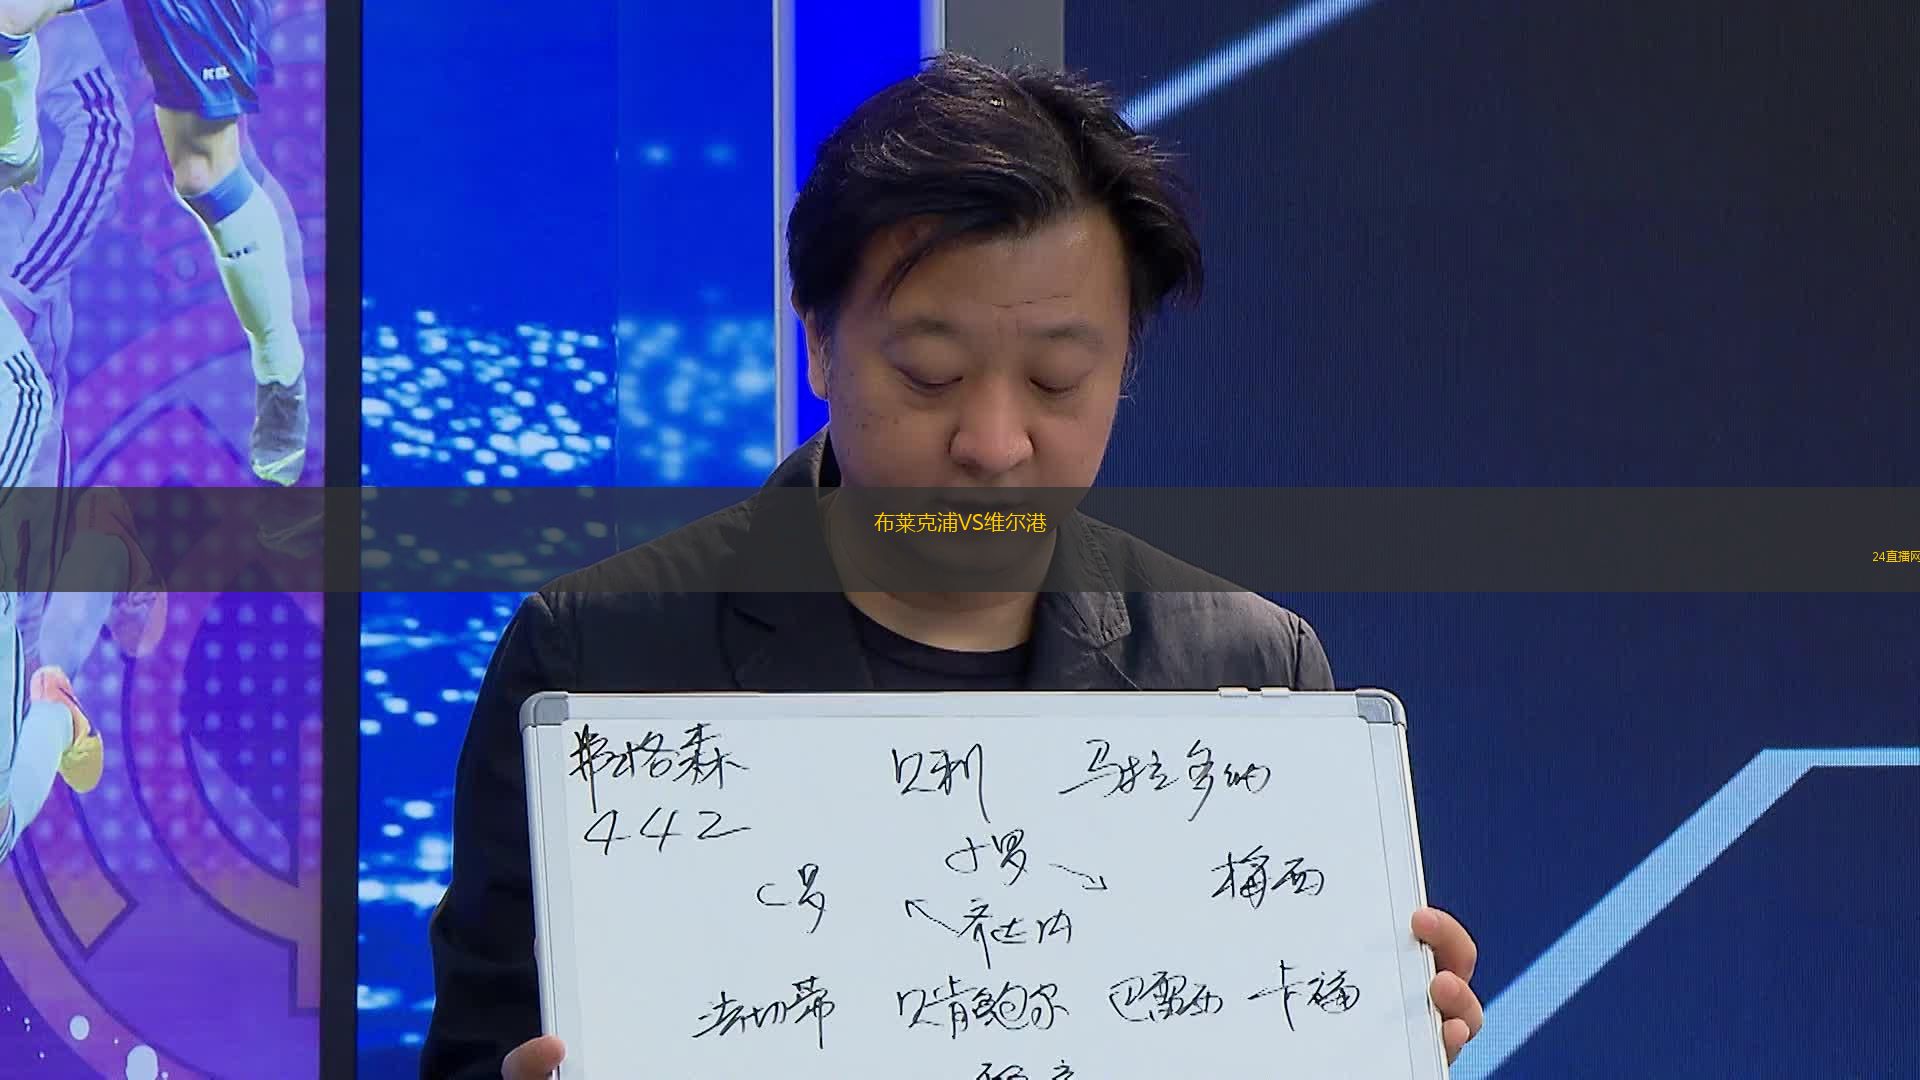 布莱克浦VS维尔港
24直播网
弗格森 贝利 马拉多纳
442
小罗
C罗 梅西
齐达内
法切蒂 贝肯鲍尔 巴雷西 卡福